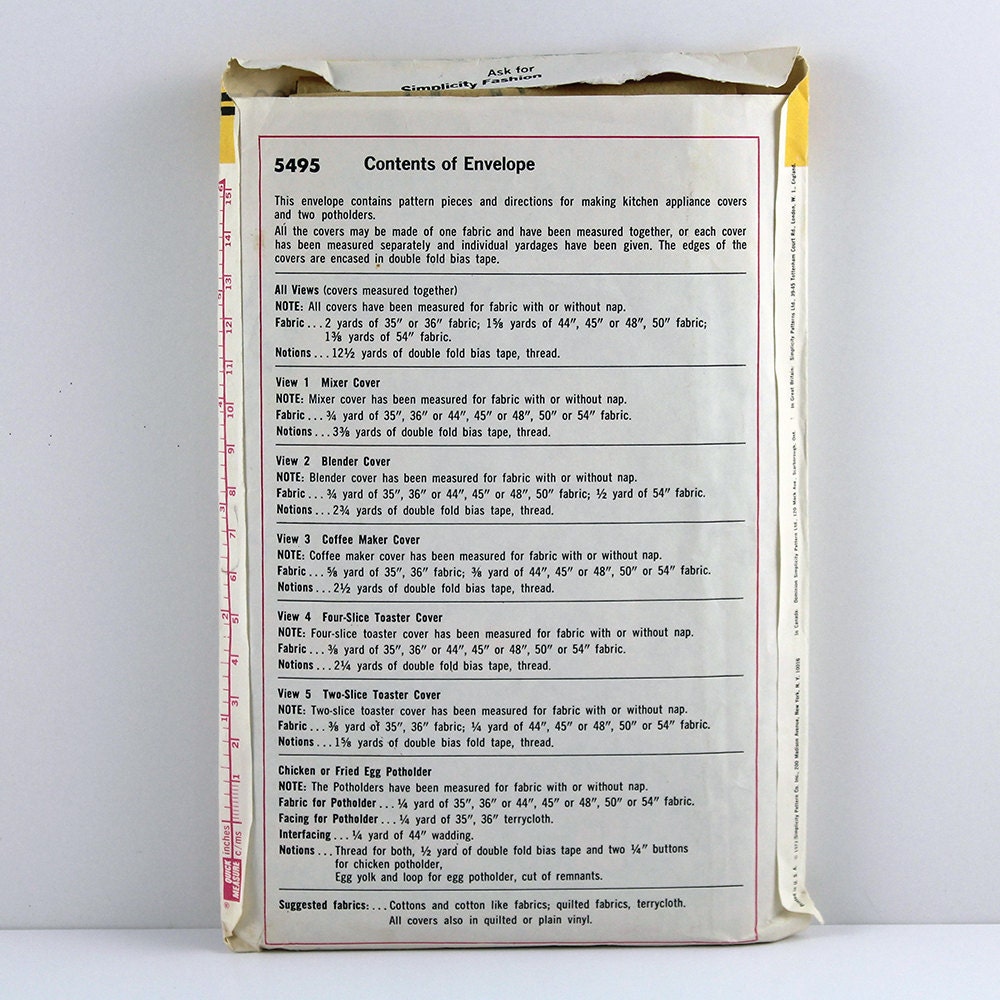 Ask for
Simplicity Fashion
5495 Contents of Envelope
This envelope contains pattern pieces and directions for making kitchen appliance covers
and two potholders.
All the covers may be made of one fabric and have been measured together, or each cover
has been measured separately and individual yardages have been given. The edges of the
covers are encased in double fold bias tape.
All Views (covers measured together)
NOTE: All covers have been measured for fabric with or without nap.
Fabric... 2 yards of 35″ or 36″ fabric; 1⅝ yards of 44″, 45″ or 48″, 50″ fabric;
1⅜ yards of 54″ fabric.
Notions... 12½ yards of double fold bias tape, thread.
View 1 Mixer Cover
NOTE: Mixer cover has been measured for fabric with or without nap.
Fabric... ¾ yard of 35″, 36″ or 44″, 45″ or 48″, 50″ or 54″ fabric.
Notions... 3⅜ yards of double fold bias tape, thread.
View 2 Blender Cover
NOTE: Blender cover has been measured for fabric with or without nap.
Fabric... ¾ yard of 35″, 36″ or 44″, 45″ or 48″, 50″ fabric; ½ yard of 54″ fabric.
Notions... 2¾ yards of double fold bias tape, thread.
View 3 Coffee Maker Cover
NOTE: Coffee maker cover has been measured for fabric with or without nap.
Fabric... ⅝ yard of 35″, 36″ fabric; ⅜ yard of 44″, 45″ or 48″, 50″ or 54″ fabric.
Notions... 2½ yards of double fold bias tape, thread.
View 4 Four-Slice Toaster Cover
NOTE: Four-slice toaster cover has been measured for fabric with or without nap.
Fabric... ⅜ yard of 35″, 36″ or 44″, 45″ or 48″, 50″ or 54″ fabric.
Notions... 2¼ yards of double fold bias tape, thread.
View 5 Two-Slice Toaster Cover
NOTE: Two-slice toaster cover has been measured for fabric with or without nap.
Fabric... ⅜ yard of 35″, 36″ fabric; ¼ yard of 44″, 45″ or 48″, 50″ or 54″ fabric.
Notions... 1⅝ yards of double bias fold tape, thread.
Chicken or Fried Egg Potholder
NOTE: The Potholders have been measured for fabric with or without nap.
Fabric for Potholder... ¼ yard of 35″, 36″ or 44″, 45″ or 48″, 50″ or 54″ fabric.
Facing for Potholder... ¼ yard of 35″, 36″ terrycloth.
Interfacing... ¼ yard of 44″ wadding.
Notions... Thread for both, ½ yard of double fold bias tape and two ¼″ buttons
for chicken potholder,
Egg yolk and loop for egg potholder, cut of remnants.
Suggested fabrics:... Cottons and cotton like fabrics; quilted fabrics, terrycloth.
All covers also in quilted or plain vinyl.
QUICK inches
MEASURE c/ms
1 2 3 4 5 6 7 8 9 10 11 12 13 14 15
1 2 3 4 5 6
in U. S. A. © 1973 Simplicity Pattern Co. Inc., 200 Madison Avenue, New York, N. Y. 10016
In Canada: Dominion Simplicity Patterns Ltd., 120 Mack Ave. Scarborough, Ont.
In Great Britain: Simplicity Patterns Ltd., 39-45 Tottenham Court Rd., London, W. 1., England.